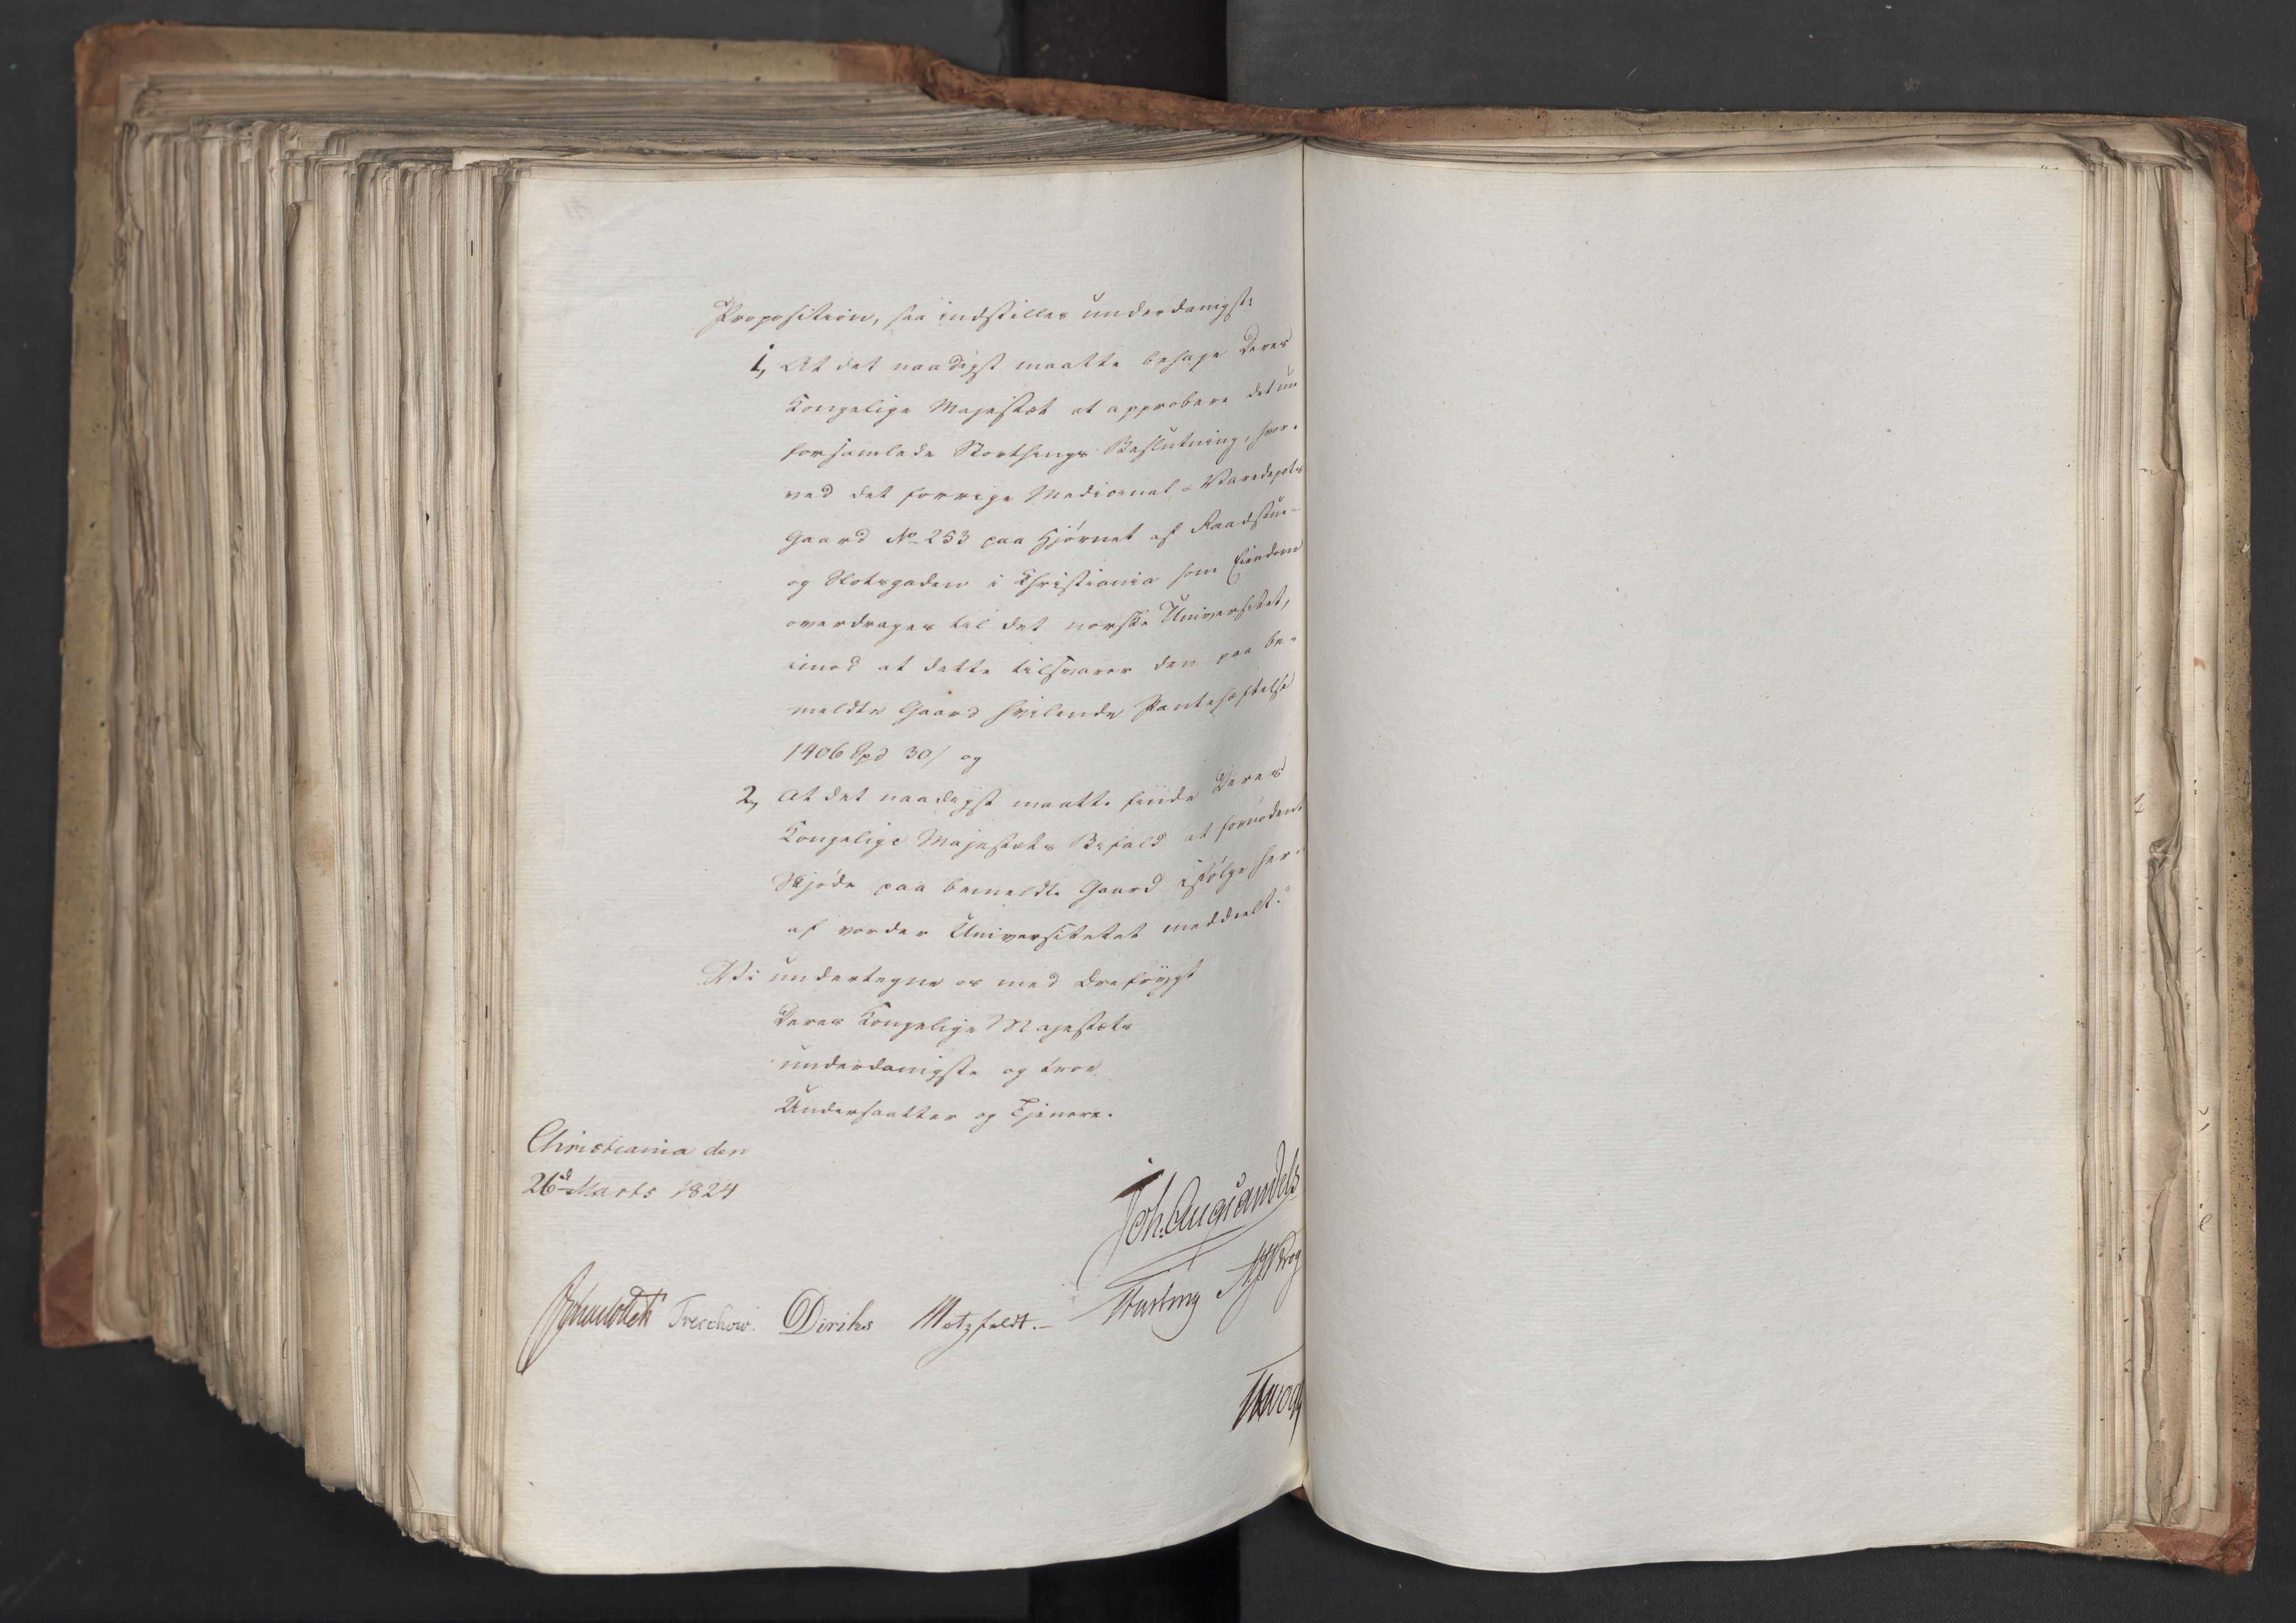 Proposition, saa indstilles underdanigst:
1, At det naadigst maatte behage Deres
Kongelige Majestæt at approbere det nu
forsamlede Storthings Beslutning, hvor-
ved det forrige Medicinal-Varedepots
Gaard No 253 paa Hjørnet af Raadstue-
og Slotsgaden i Christiania som Eiendom
overdrages til det norske Universitet,
imod at dette tilsvarer den paa be-
meldte Gaard hvilende Panteheftelse
1406 Spd 30/ og
2, At det naadigst maatte finde Deres
Kongelige Majestæts Bifald at fornødent
Skjøde paa bemeldte Gaard ifølge her-
af vorder Universitetet meddeelt."
Vi undertegne os med Ærefrygt
Deres Kongelige Majestæts
underdanigste og troe
Undersaatter og Tjenere.
Christiania den
26d Marts 1824
Joh. Aug. Sandels
Treschow. Diriks Motzfeldt.-